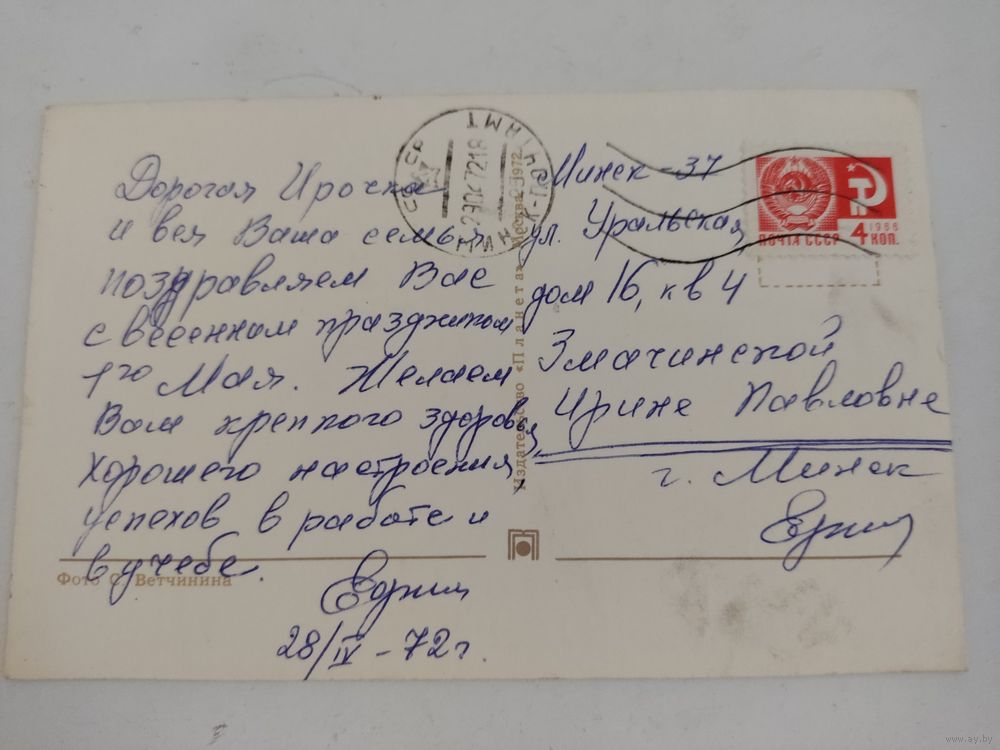 Дорогая Ирочка
и вся Ваша семья
поздравляем Вас
с весенним праздником
1го Мая. Желаем
Вам крепкого здоровья,
хорошего настроения
успехов в работе и
в учебе.
28/IV - 72 г.
Фото С. Ветчинина
Издательство «Планета» Москва 1972
СССР
МИНСК ПОЧТАМТ
290472 18
Минск - 37
ул. Уральская,
дом 16, кв 4
Змачинской
Ирине Павловне
г. Минск
ПОЧТА СССР
1966
4 КОП.
www.ay.by